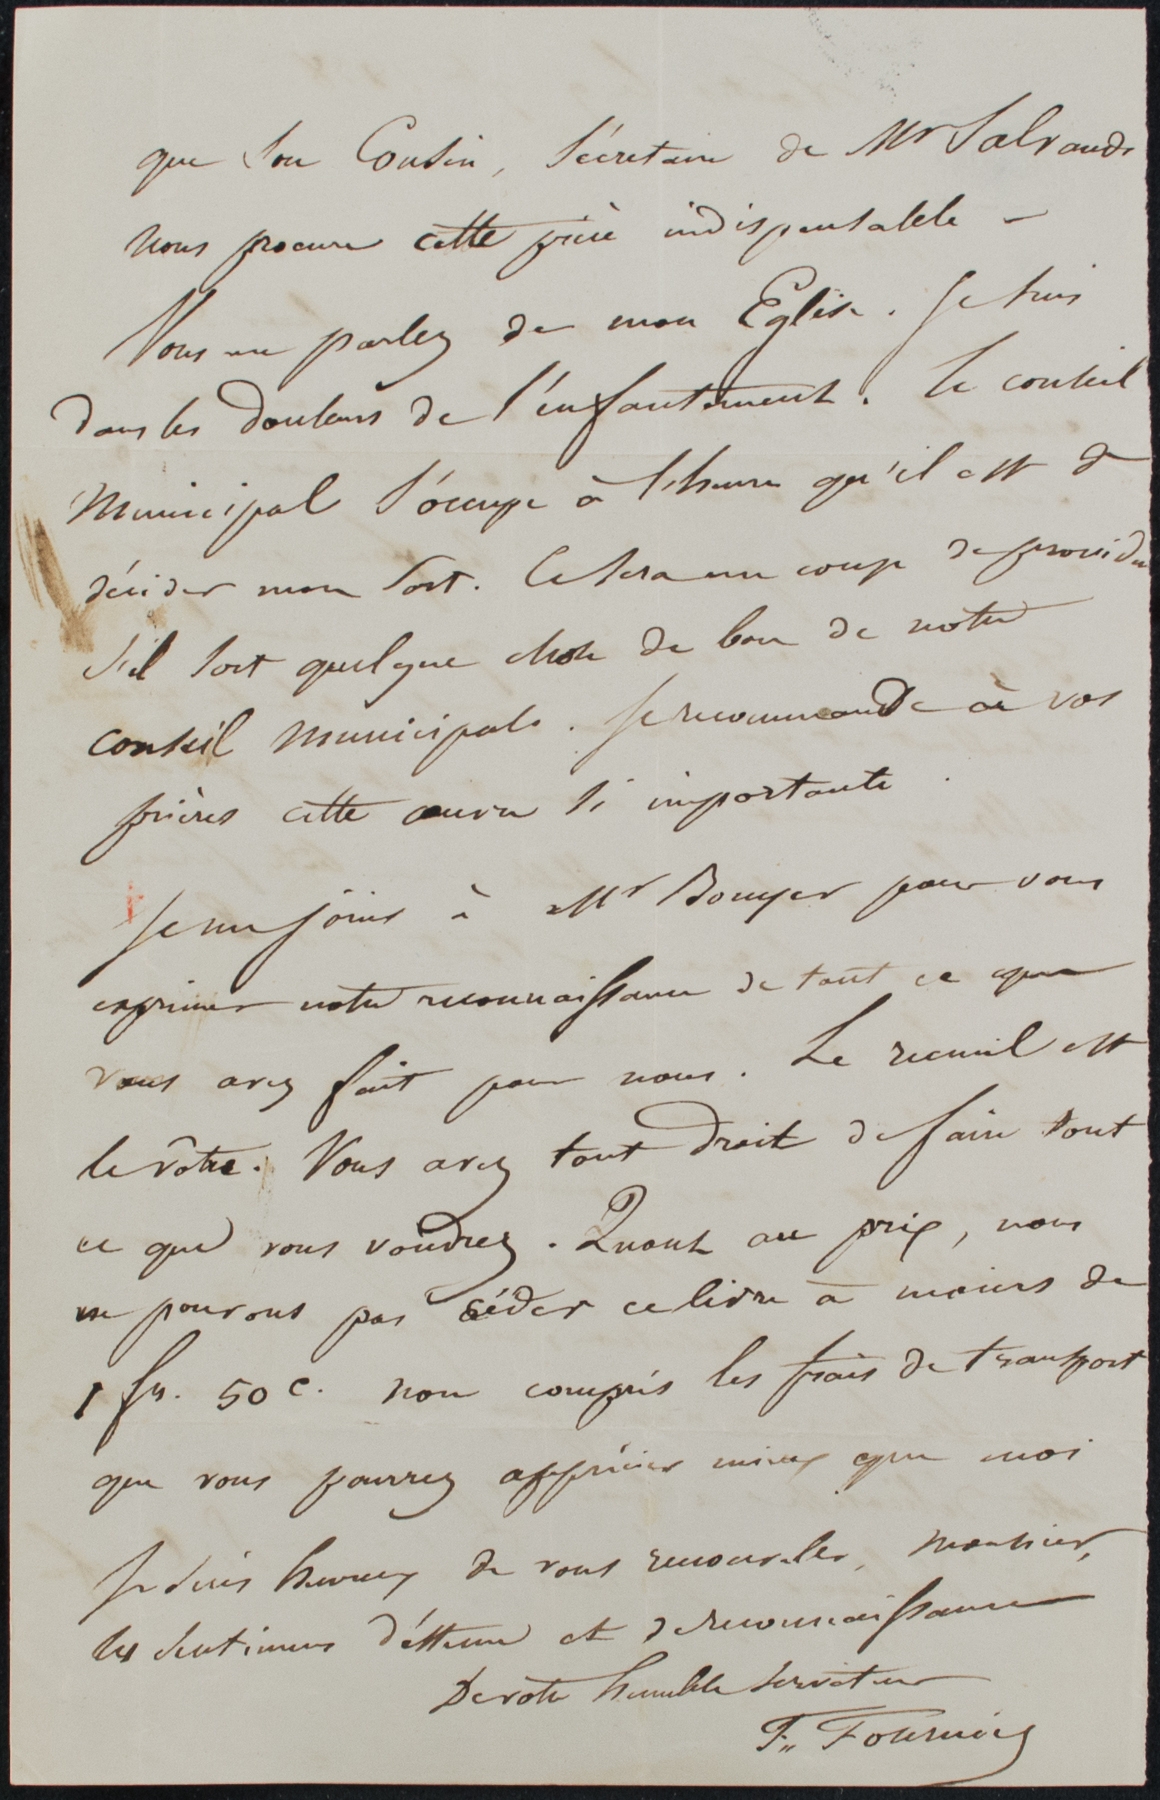 que son Cousin, Sécretaire de Mr Salvandi
nous procure cette pièce indispensable –
Vous me parlez de mon Eglise. Je suis
dans les douleurs de l'enfantement. Le conseil
Municipal s'occupe à l'heure qu'il est de
décider mon sort. Ce sera un coup de providen
s'il sort quelque chose de bon de notre
conseil municipal. Je recommande à vos
prières cette œuvre si importante.
Je me joins à Mr Bouyer pour vous
exprimer notre reconnaissance de tout ce que
vous avez fait pour nous. Le recueil est
le vôtre. Vous avez tout droit de faire tout
ce que vous voudrez. Quant au prix, nous
ne pouvons pas céder ce livre à moins de
1 fr. 50 c. non compris les frais de transport
que vous pourrez apprécier mieux que moi
Je suis heureux de vous renouveler, Monsieur,
les sentimens d'estime et de reconnaissance
De votre humble serviteur
F. Fournier